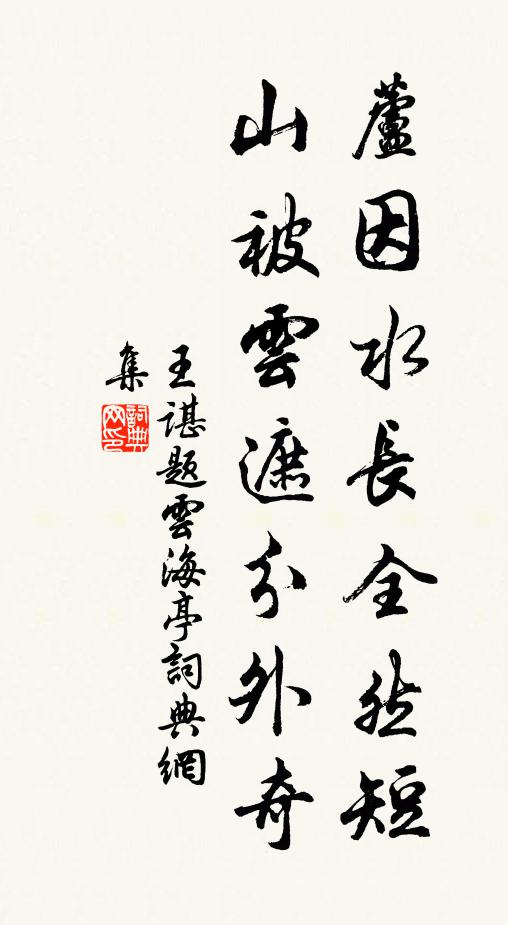 蘆因水長全然短
山被雲遮分外奇
王諶題雲海亭詞典網
集
詞典
网印